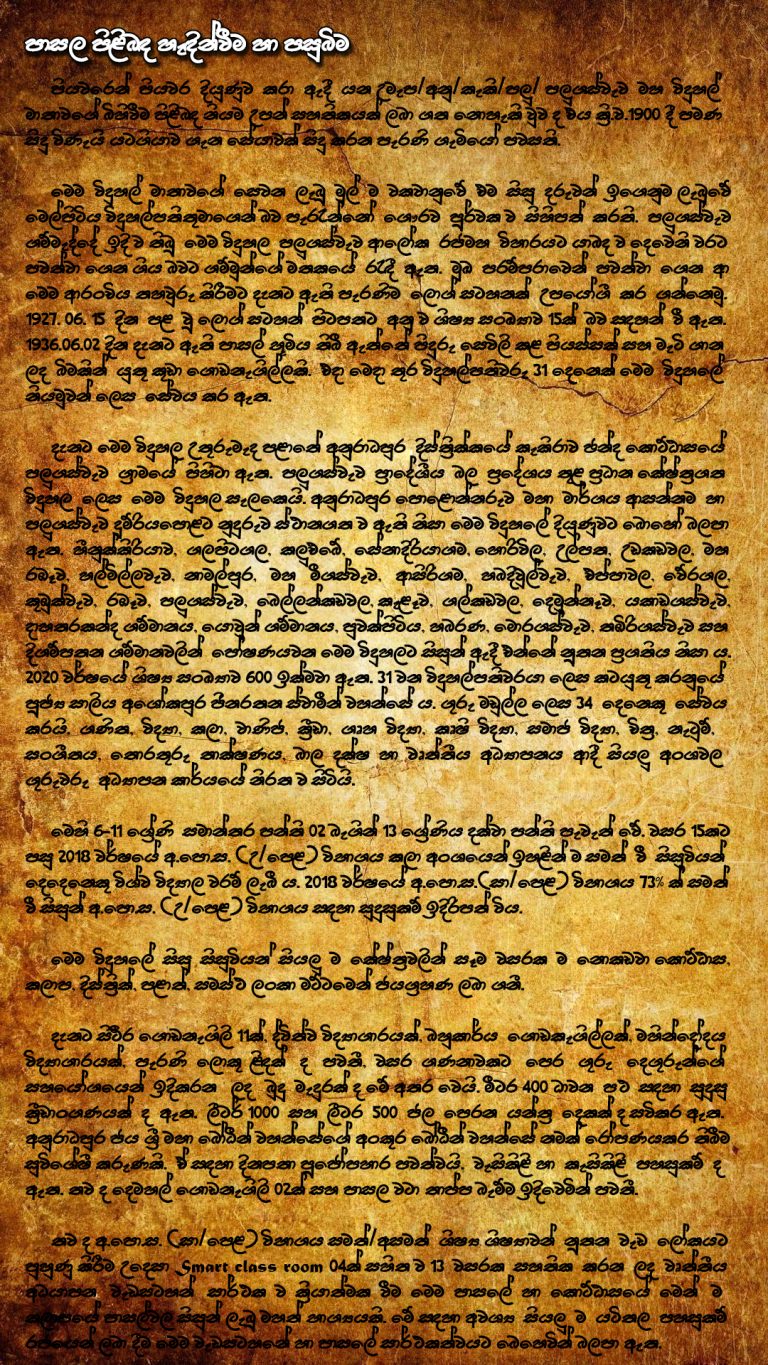 පාසල පිළිබඳ හැඳින්වීම හා පසුබිම
පියවරෙන් පියවර දියුණුව කරා ඇදී යන උමැප/අනු/කැකි/පලු/ පලුගස්වැව මහ විදුහල්
මාතාවගේ බිහිවීම පිළිබඳ නියම උපන් සහතිකයක් ලබා ගත නොහැකි වුව ද එය ක්‍රි.ව.1900 දී පමණ
සිදු විණැයි යටගියාව ගැන සේයාවක් සිදු කරන පැරණි ගැමියෝ පවසති.
මෙම විදුහල් මාතාවගේ සෙවන ලැබූ මුල් ම වකවානුවේ එම සිසු දරුවන් ඉගෙනුම ලැබුවේ
මෙල්පිටිය විදුහල්පතිතුමාගෙන් බව පැරැන්නෝ ගෞරව පූර්වක ව සිහිපත් කරති. පලුගස්වැව
ගම්මැද්දේ ඉදි ව තිබූ මෙම විදුහල පලුගස්වැව ආලෝක රජමහ විහාරයට යාබද ව දෙවෙනි වරට
පවත්වා ගෙන ගිය බවට ගම්මුන්ගේ මතකයේ රැඳී ඇත. මුඛ පරම්පරාවෙන් පවත්වා ගෙන ආ
මෙම ආරංචිය තහවුරු කිරීමට දැනට ඇති පැරණිම ලොග් සටහනක් උපයෝගී කර ගන්නෙමු.
1927. 06. 15 දින පළ වූ ලොග් සටහන් පිටපතට අනු ව ශිෂ්‍ය සංඛ්‍යාව 15ක් බව සඳහන් වී ඇත.
1936.06.02 දින දැනට ඇති පාසල් භූමිය තිබී ඇත්තේ පිදුරු සෙවිලි කළ පියස්සක් සහ මැටි ගාන
ලද බිමකින් යුතු කුඩා ගොඩනැගිල්ලකි. එදා මෙදා තුර විදුහල්පතිවරු 31 දෙනෙක් මෙම විදුහලේ
නියමුවන් ලෙස සේවය කර ඇත.
දැනට මෙම විදුහල උතුරුමැද පළාතේ අනුරාධපුර දිස්ත්‍රික්කයේ කැකිරාව ඡන්ද කොට්ඨාසයේ
පලුගස්වැව ග්‍රාමයේ පිහිටා ඇත. පලුගස්වැව ප්‍රාදේශීය බල ප්‍රදේශය තුළ ප්‍රධාන කේෂ්ත්‍රගත
විදුහල ලෙස මෙම විදුහල සැලකෙයි. අනුරාධපුර පොළොන්නරුව මහා මාර්ගය ආසන්නම හා
පලුගස්වැව දුම්රියපොළට නුදුරුව ස්ථානගත ව ඇති නිසා මෙම විදුහලේ දියුණුවට බොහෝ බලපා
ඇත. හීනුක්කිරියාව, ගලපිටගල, කලුඑබේ, සේනාදිරියාගම, හොරිවිල, උල්පත, උඩකඩවල, මහ
රඹෑව, හල්මිල්ලවැව, කාමල්පුර, මහ මීගස්වැව, ආසිරිගම, හබදිවුල්වැව, එප්පාවල, වේරගල,
කුඹුක්වැව, රඹෑව, පලුගස්වැව, බෙල්ලන්කඩවල, කැළෑව, ගල්කඩවල, දෙමුන්නෑව, යකාඩගස්වැව,
දාහතරකන්ද ගම්මානය, යොවුන් ගම්මානය, පුවක්පිටිය, හබරණ, මොරගස්වැව, තඹිරිගස්වැව සහ
දිගම්පතන ගම්මානවලින් පෝෂණයවන මෙම විදුහලට සිසුන් ඇදී එන්නේ නූතන ප්‍රගතිය නිසා ය.
2020 වර්ෂයේ ශිෂ්‍ය සංඛ්‍යාව 600 ඉක්මවා ඇත. 31 වන විදුහල්පතිවරයා ලෙස කටයුතු කරනුයේ
පූජ්‍ය සාලිය අශෝකපුර ජිනරතන ස්වාමීන් වහන්සේ ය. ගුරු මඩුල්ල ලෙස 34 දෙනෙකු සේවය
කරයි. ගණිත, විද්‍යා, කලා, වාණිජ, ක්‍රීඩා, ගෘහ විද්‍යා, කෘෂි විද්‍යා, සමාජ විද්‍යා, චිත්‍ර, නැටුම්,
සංගීතය, තොරතුරු තාක්ෂණය, බාල දක්ෂ හා වෘත්තීය අධ්‍යාපනය ආදී සියලු අංශවල
ගුරුවරු අධ්‍යාපන කාර්යයේ නිරත ව සිටියි.
මෙහි 6-11 ශ්‍රේණි සමාන්තර පන්ති 02 බැගින් 13 ශ්‍රේණිය දක්වා පන්ති පැවැත් වේ. වසර 15කට
පසු 2018 වර්ෂයේ අ.පො.ස. (උ/පෙළ) විභාගය කලා අංශයෙන් ඉහළින් ම සමත් වී සිසුවියන්
දෙදෙනෙකු විශ්ව විද්‍යාල වරම් ලැබී ය. 2018 වර්ෂයේ අ.පො.ස.(සා/පෙළ) විභාගය 73% ක් සමත්
වී සිසුන් අ.පො.ස. (උ/පෙළ) විභාගය සඳහා සුදුසුකම් ඉදිරිපත් විය.
මෙම විදුහලේ සිසු සිසුවියන් සියලු ම කේෂ්ත්‍රවලින් සෑම වසරක ම නොකඩවා කොට්ඨාස,
කලාප, දිස්ත්‍රික්, පළාත්, සමස්ත ලංකා මට්ටමෙන් ජයග්‍රහණ ලබා ගනී.
දැනට සිවිර ගොඩනැගිලි 11ක්, ද්විත්ව විද්‍යාගාරයක්, බහුකාර්ය ගොඩනැගිල්ලක්, මහින්දෝදය
විද්‍යාගාරයක්, පැරණි ලොකු ළිඳක් ද පවතී. වසර ගණනාවකට පෙර ගුරු දෙගුරුන්ගේ
සහයෝගයෙන් ඉදිකරන ලද බුදු මැදුරක් ද මේ අතර වෙයි. මීටර 400 ධාවන පථ සඳහා සුදුසු
ක්‍රීඩාංගණයක් ද ඇත. ලීටර් 1000 සහ ලීටර 500 ජල පෙරන යන්ත්‍ර දෙකක් ද සවිකර ඇත.
අනුරාධපුර ජය ශ්‍රී මහා බෝධීන් වහන්සේගේ අංකුර බෝධීන් වහන්සේ නමක් රෝපණයකර තිබීම
සුවිශේෂී කරුණකි. ඒ සඳහා දිනපතා පූජෝපහාර පවත්වයි. වැසිකිළි හා කැසිකිළි පහසුකම් ද
ඇත. තව ද දෙමහල් ගොඩනැගිලි 02ක් සහ පාසල වටා තාප්ප බැම්ම ඉදිවෙමින් පවතී.
තව ද අ.පො.ස. (සා/පෙළ) විභාගය සමත්/අසමත් ශිෂ්‍ය ශිෂ්‍යාවන් නූතන වැඩ ලෝකයට
පුහුණු කිරීම උදෙසා Smart class room 04ක් සහිත ව 13 වසරක සහතික කරන ලද වෘත්තීය
අධ්‍යාපන වැඩසටහන් සාර්ථක ව ක්‍රියාත්මක වීම මෙම පාසලේ හා කොට්ඨාසයේ මෙන් ම
කලාපයේ පාසල්වල සිසුන් ලැබූ මහත් භාග්‍යයකි. මේ සඳහා අවශ්‍ය සියලු ම යටිතල පහසුකම්
රජයෙන් ලබා දීම මෙම වැඩසටහනේ හා පාසලේ සාර්ථකත්වයට බෙහෙවින් බලපා ඇත.